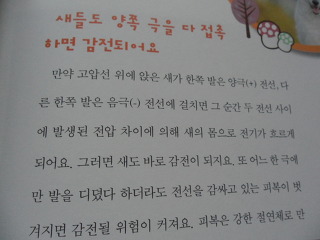 새들도 양쪽 극을 다 접촉
하면 감전되어요
만약 고압선 위에 앉은 새가 한쪽 발은 양극(+) 전선, 다
른 한쪽 발은 음극(-) 전선에 걸치면 그 순간 두 전선 사이
에 발생된 전압 차이에 의해 새의 몸으로 전기가 흐르게
되어요. 그러면 새도 바로 감전이 되지요. 또 어느 한 극에
만 발을 디뎠다 하더라도 전선을 감싸고 있는 피복이 벗
겨지면 감전될 위험이 커져요. 피복은 강한 절연체로 만